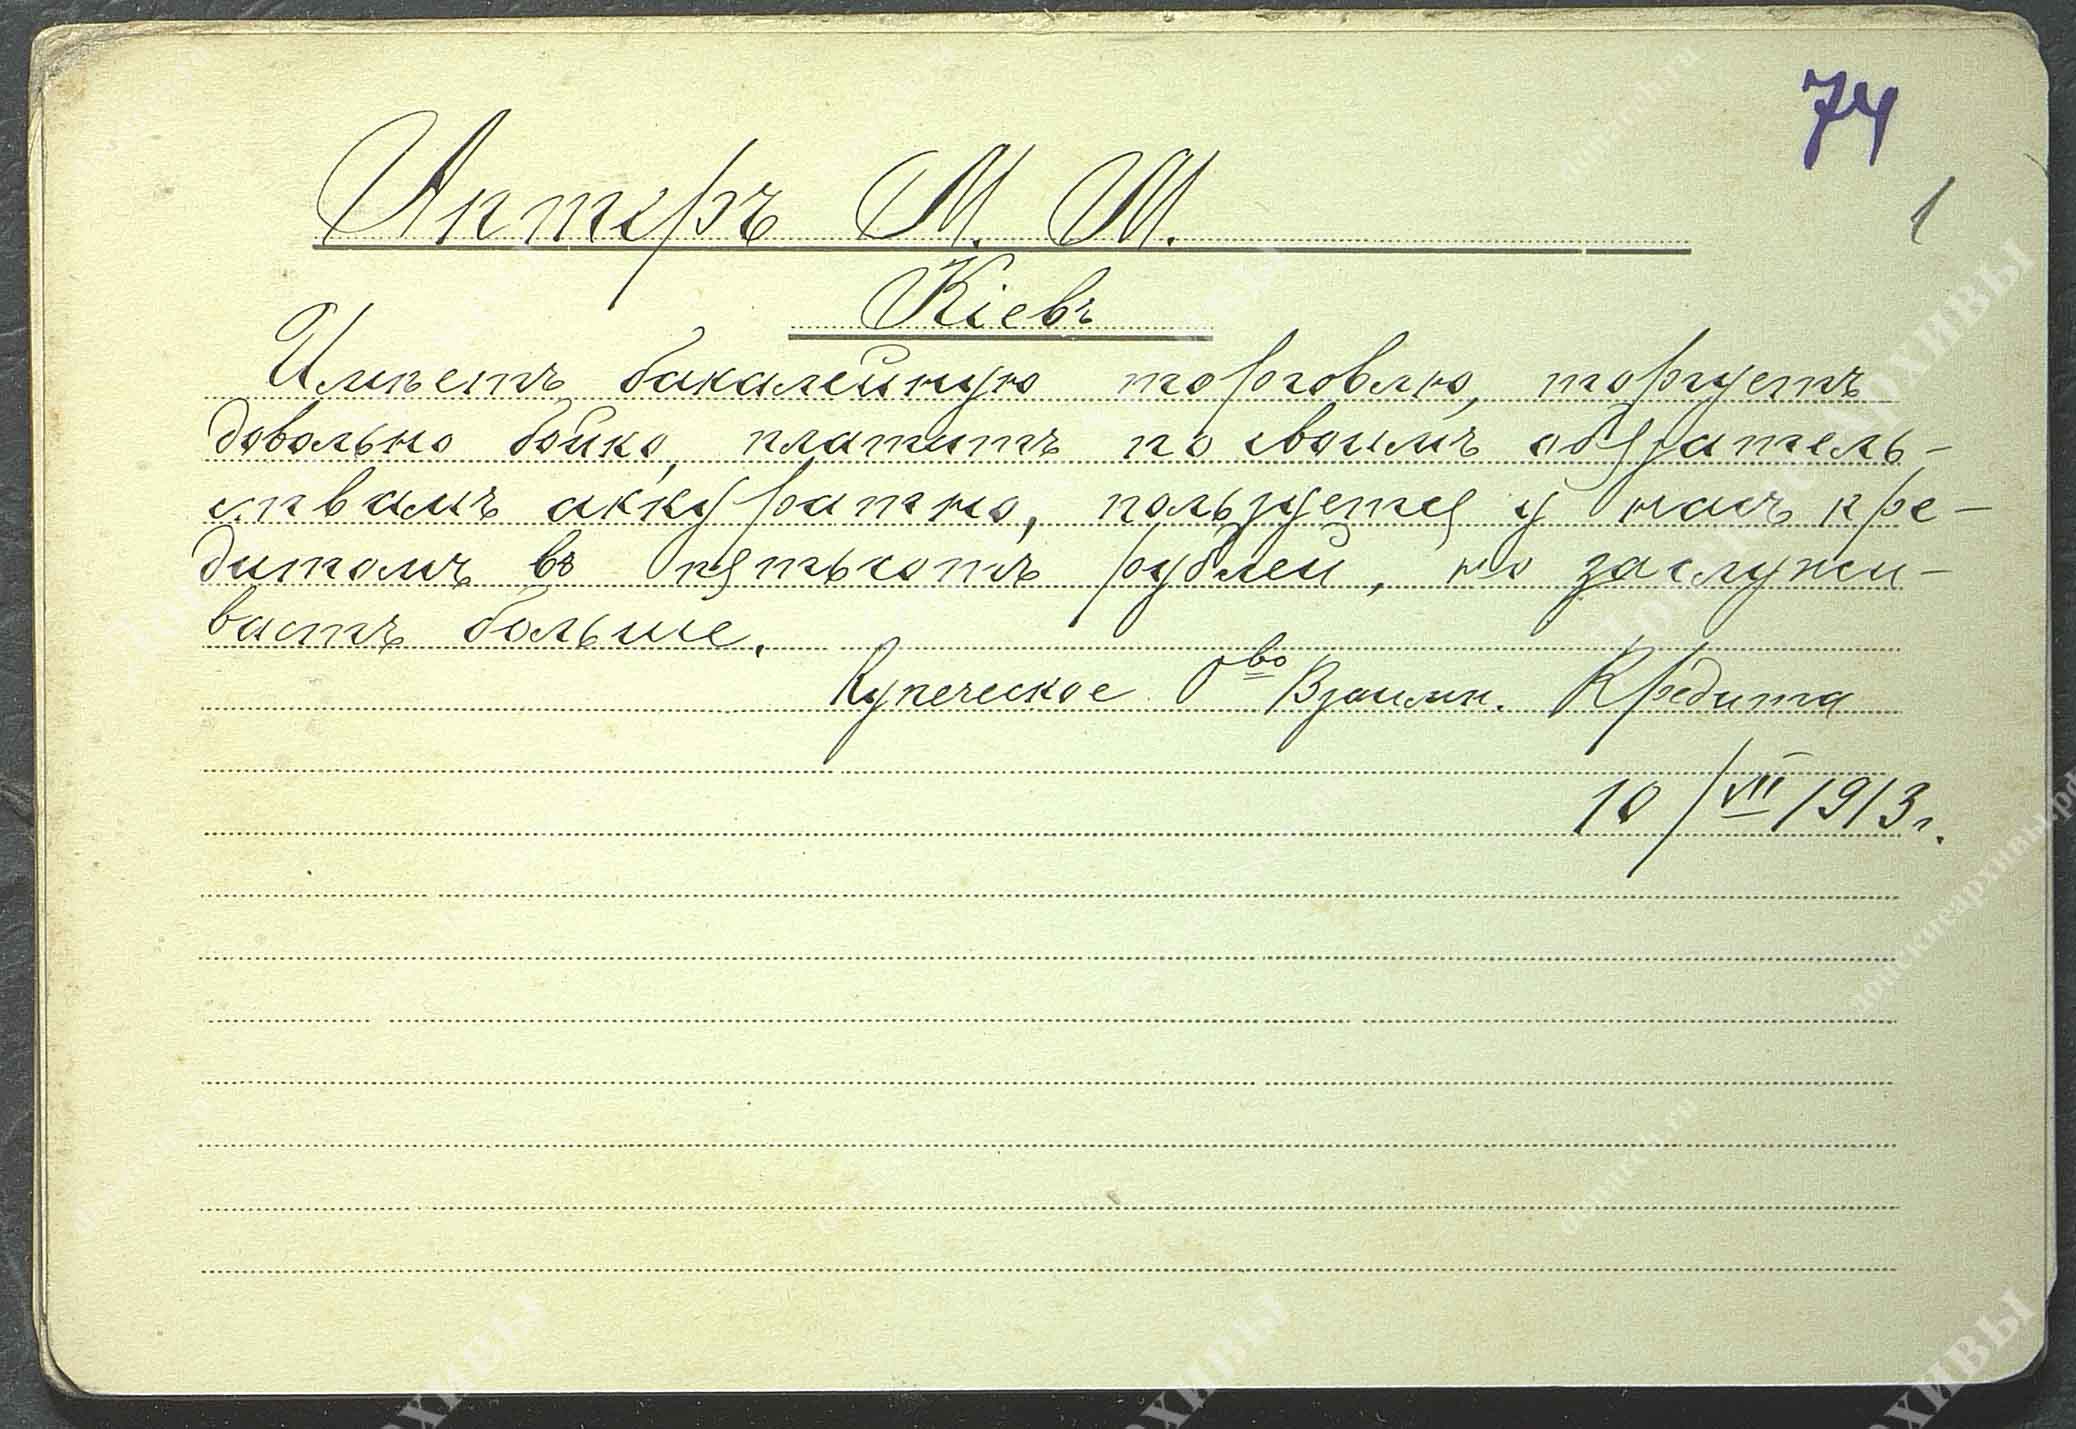 74
1
Актеръ М. М.
Кіевъ
Имѣетъ бакалейную торговлю, торгуетъ
довольно бойко, платитъ по своимъ обязатель-
ствамъ аккуратно, пользуется у насъ кре-
дитомъ въ пятьсотъ рублей, но заслужи-
ваетъ больше.
Купеческое О-во Взаимн. Кредита
10/VII 1913 г.